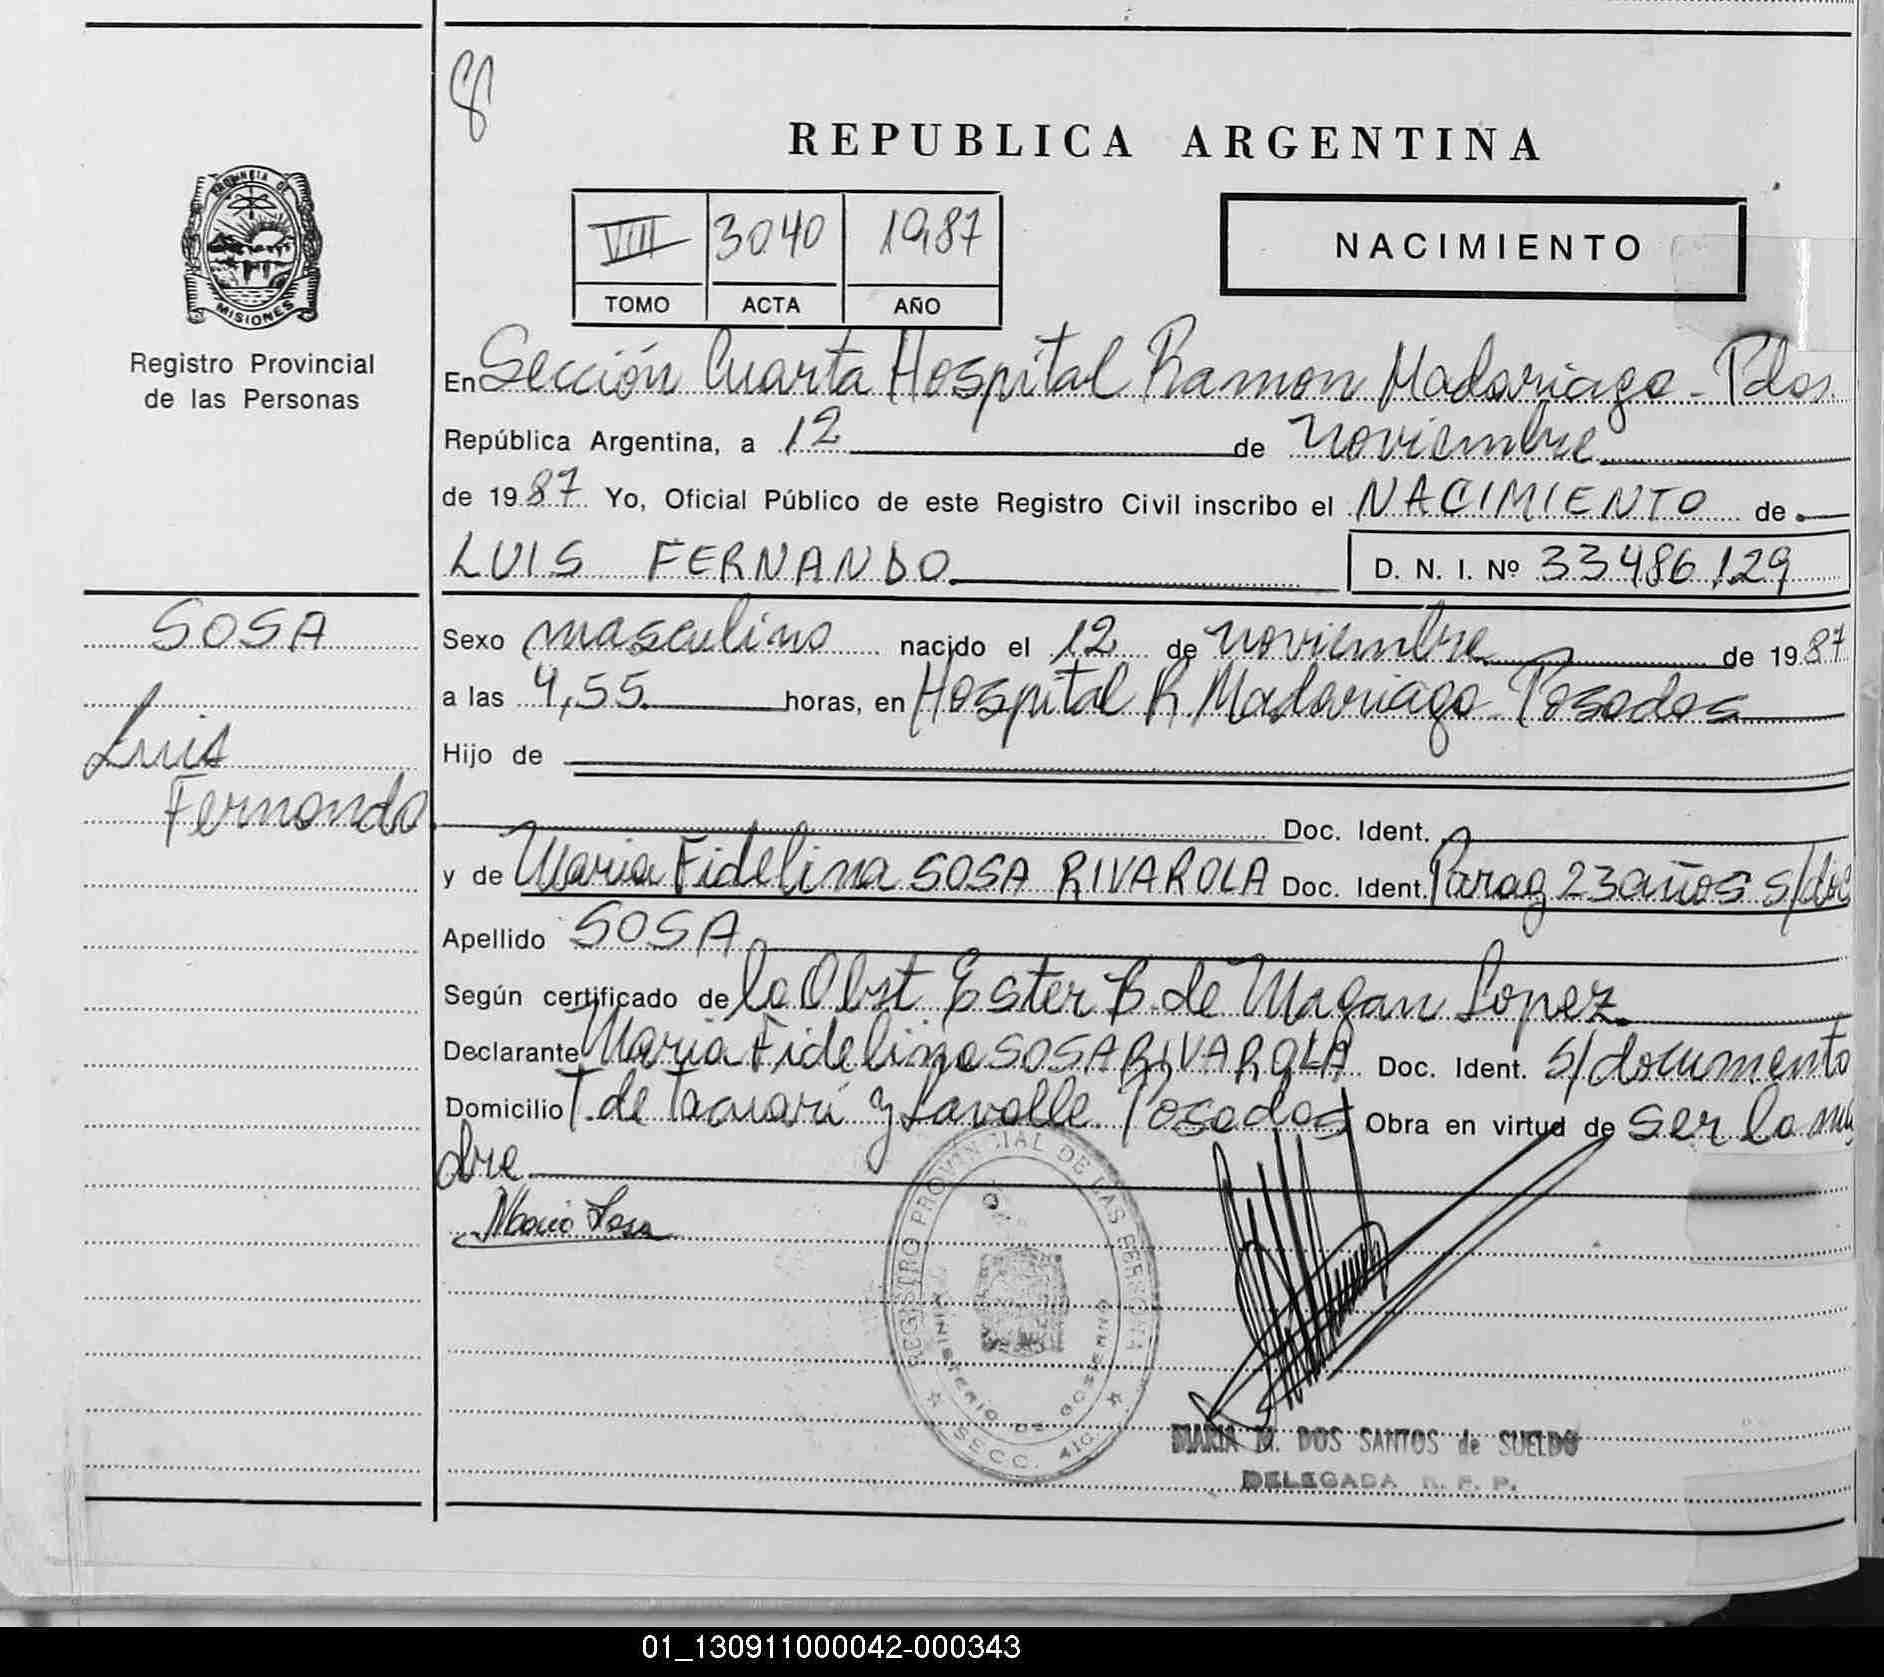 8
REPUBLICA ARGENTINA
PROVINCIA DE
MISIONES
Registro Provincial
de las Personas
VIII 3040 1987
TOMO ACTA AÑO
NACIMIENTO
En Sección Cuarta Hospital Ramon Madariaga - Pdas.
República Argentina, a 12 de noviembre
de 1987 Yo, Oficial Público de este Registro Civil inscribo el NACIMIENTO de
LUIS FERNANDO D. N. I. Nº 33486129
SOSA
Luis
Fernando
Sexo masculino nacido el 12 de noviembre de 1987
a las 4,55 horas, en Hospital R. Madariaga Posadas
Hijo de
Doc. Ident.
y de Maria Fidelina SOSA RIVAROLA Doc. Ident. Parag 23 años s/doc
Apellido SOSA
Según certificado de la Obst Ester B. de Magan Lopez
Declarante Maria Fidelina SOSA RIVAROLA Doc. Ident. s/documento
Domicilio T. de Tacuarí y Lavalle. Posadas Obra en virtud de ser la ma
dre
Maria Sosa
REGISTRO PROVINCIAL DE LAS PERSONAS
MINISTERIO DE GOBIERNO
SECC. 4TA.
MARIA M. DOS SANTOS de SUELDO
DELEGADA R. P. P.
01_130911000042-000343